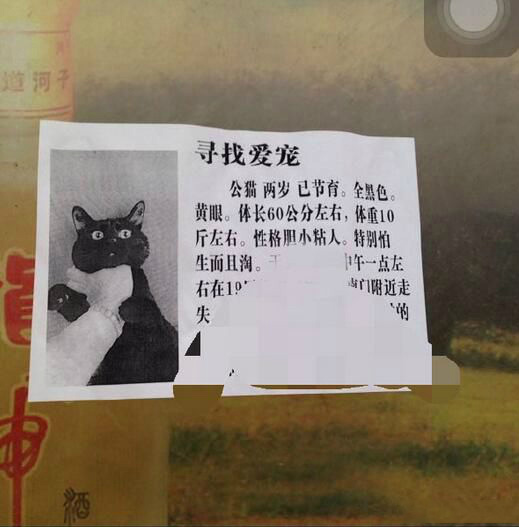 寻找爱宠
公猫 两岁 已节育。全黑色。
黄眼。体长60公分左右，体重10
斤左右。性格胆小粘人。特别怕
生面且淘。 午一点左
右在19 南门附近走
失 的
道河子
神
酒